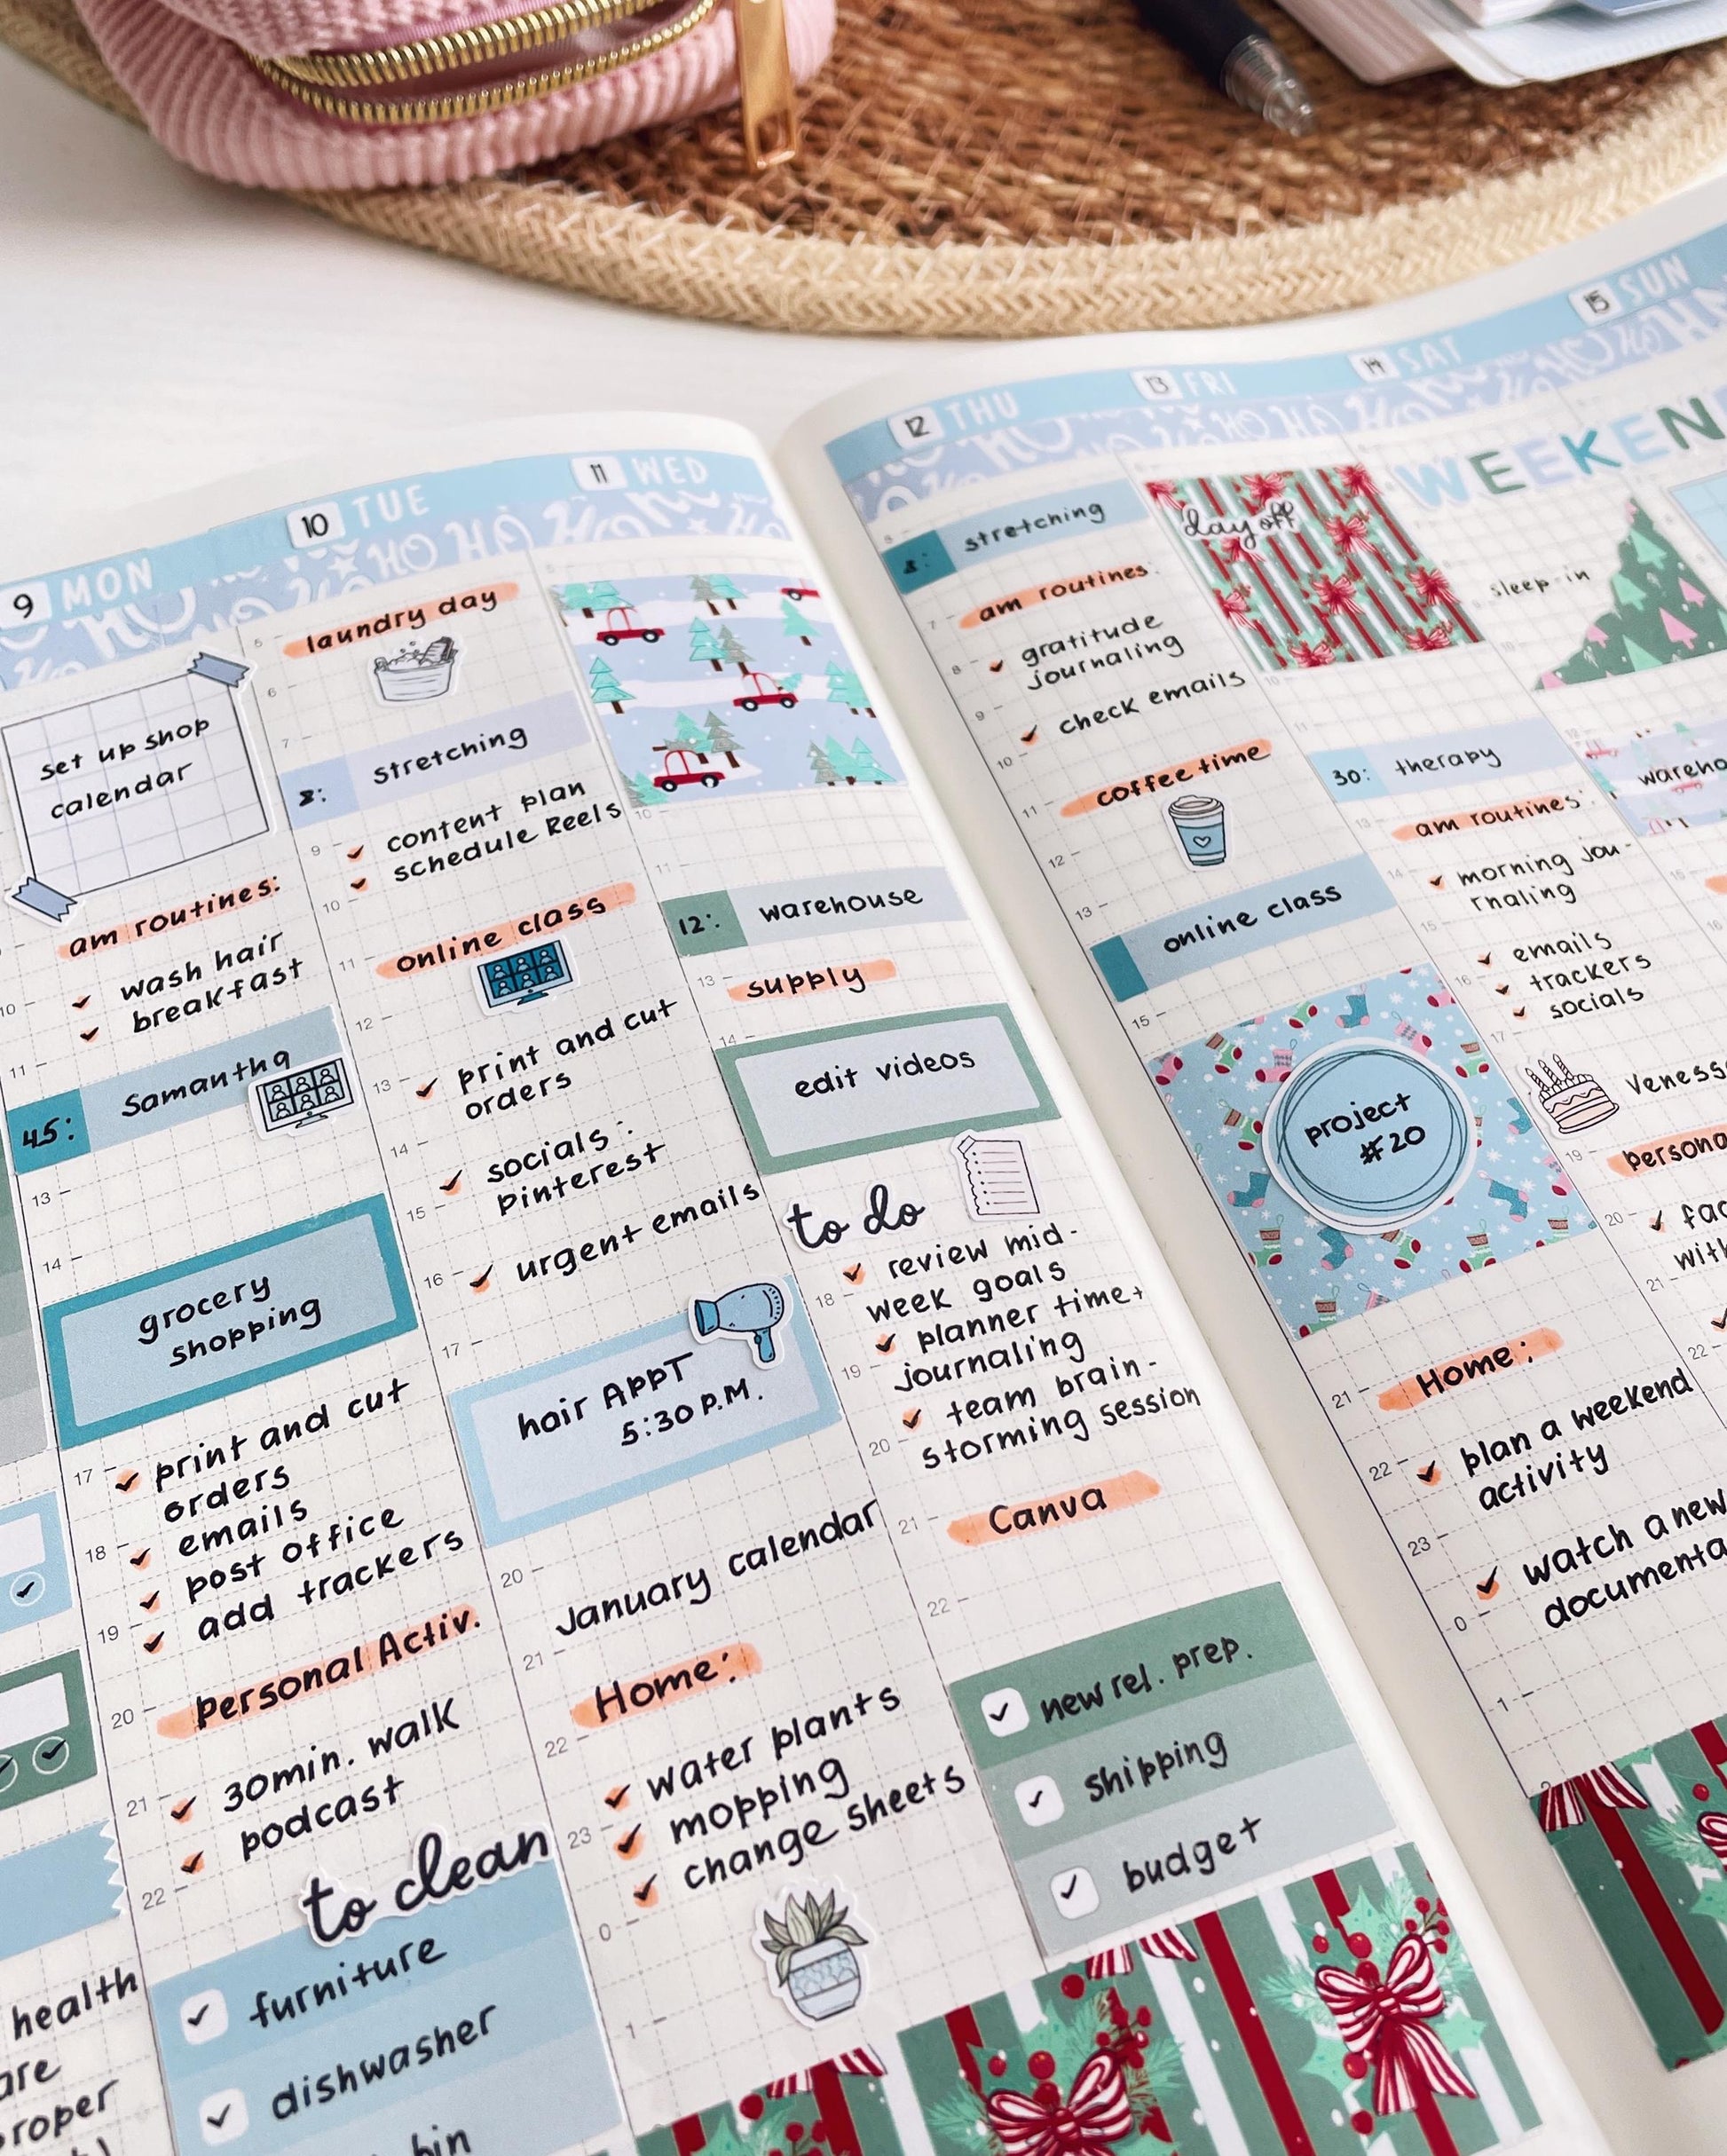 9 MON
set up shop
calendar
am routines:
wash hair
breakfast
10
11
45: Samantha
13
14
grocery
shopping
17
print and cut
orders
18
emails
post office
19
add trackers
Personal Activ.
20
30min. walk
21
podcast
22
to clean
furniture
dishwasher
bin
health
are
roper
10 TUE
5
laundry day
6
7
8: stretching
9
content plan
schedule Reels
10
online class
11
12
13
print and cut
orders
14
socials:
pinterest
15
16
urgent emails
17
hair APPT
5:30 P.M.
20
January calendar
21
Home:
22
water plants
mopping
23
change sheets
0
1
11 WED
10
11
12: warehouse
13
supply
14
edit videos
to do
review mid-
18
week goals
planner time+
19
journaling
team brain-
20
storming session
21
Canva
22
new rel. prep.
shipping
budget
12 THU
8: stretching
7
am routines:
8
gratitude
journaling
9
check emails
10
coffee time
11
12
13
online class
15
project
#20
Home:
21
22
plan a weekend
activity
23
watch a new
0
documenta
1
2
13 FRI
day off
10
11
30: therapy
13
am routines:
14
morning jou-
rnaling
15
emails
16
trackers
socials
17
Veness
19
persona
20
fac
with
21
22
14 SAT
WEEKEN
sleep-in
wareho
15 SUN